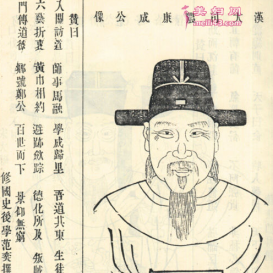 漢大司農康成公像
贊曰
入關訪道 師事馬融 學成歸里 吾道共東 生徒
六藝折衷 黃巾相約 遊跡斂踪 德化所及
門傳道 鄉號鄭公 百世而下 景仰無窮
修國史後學范奕